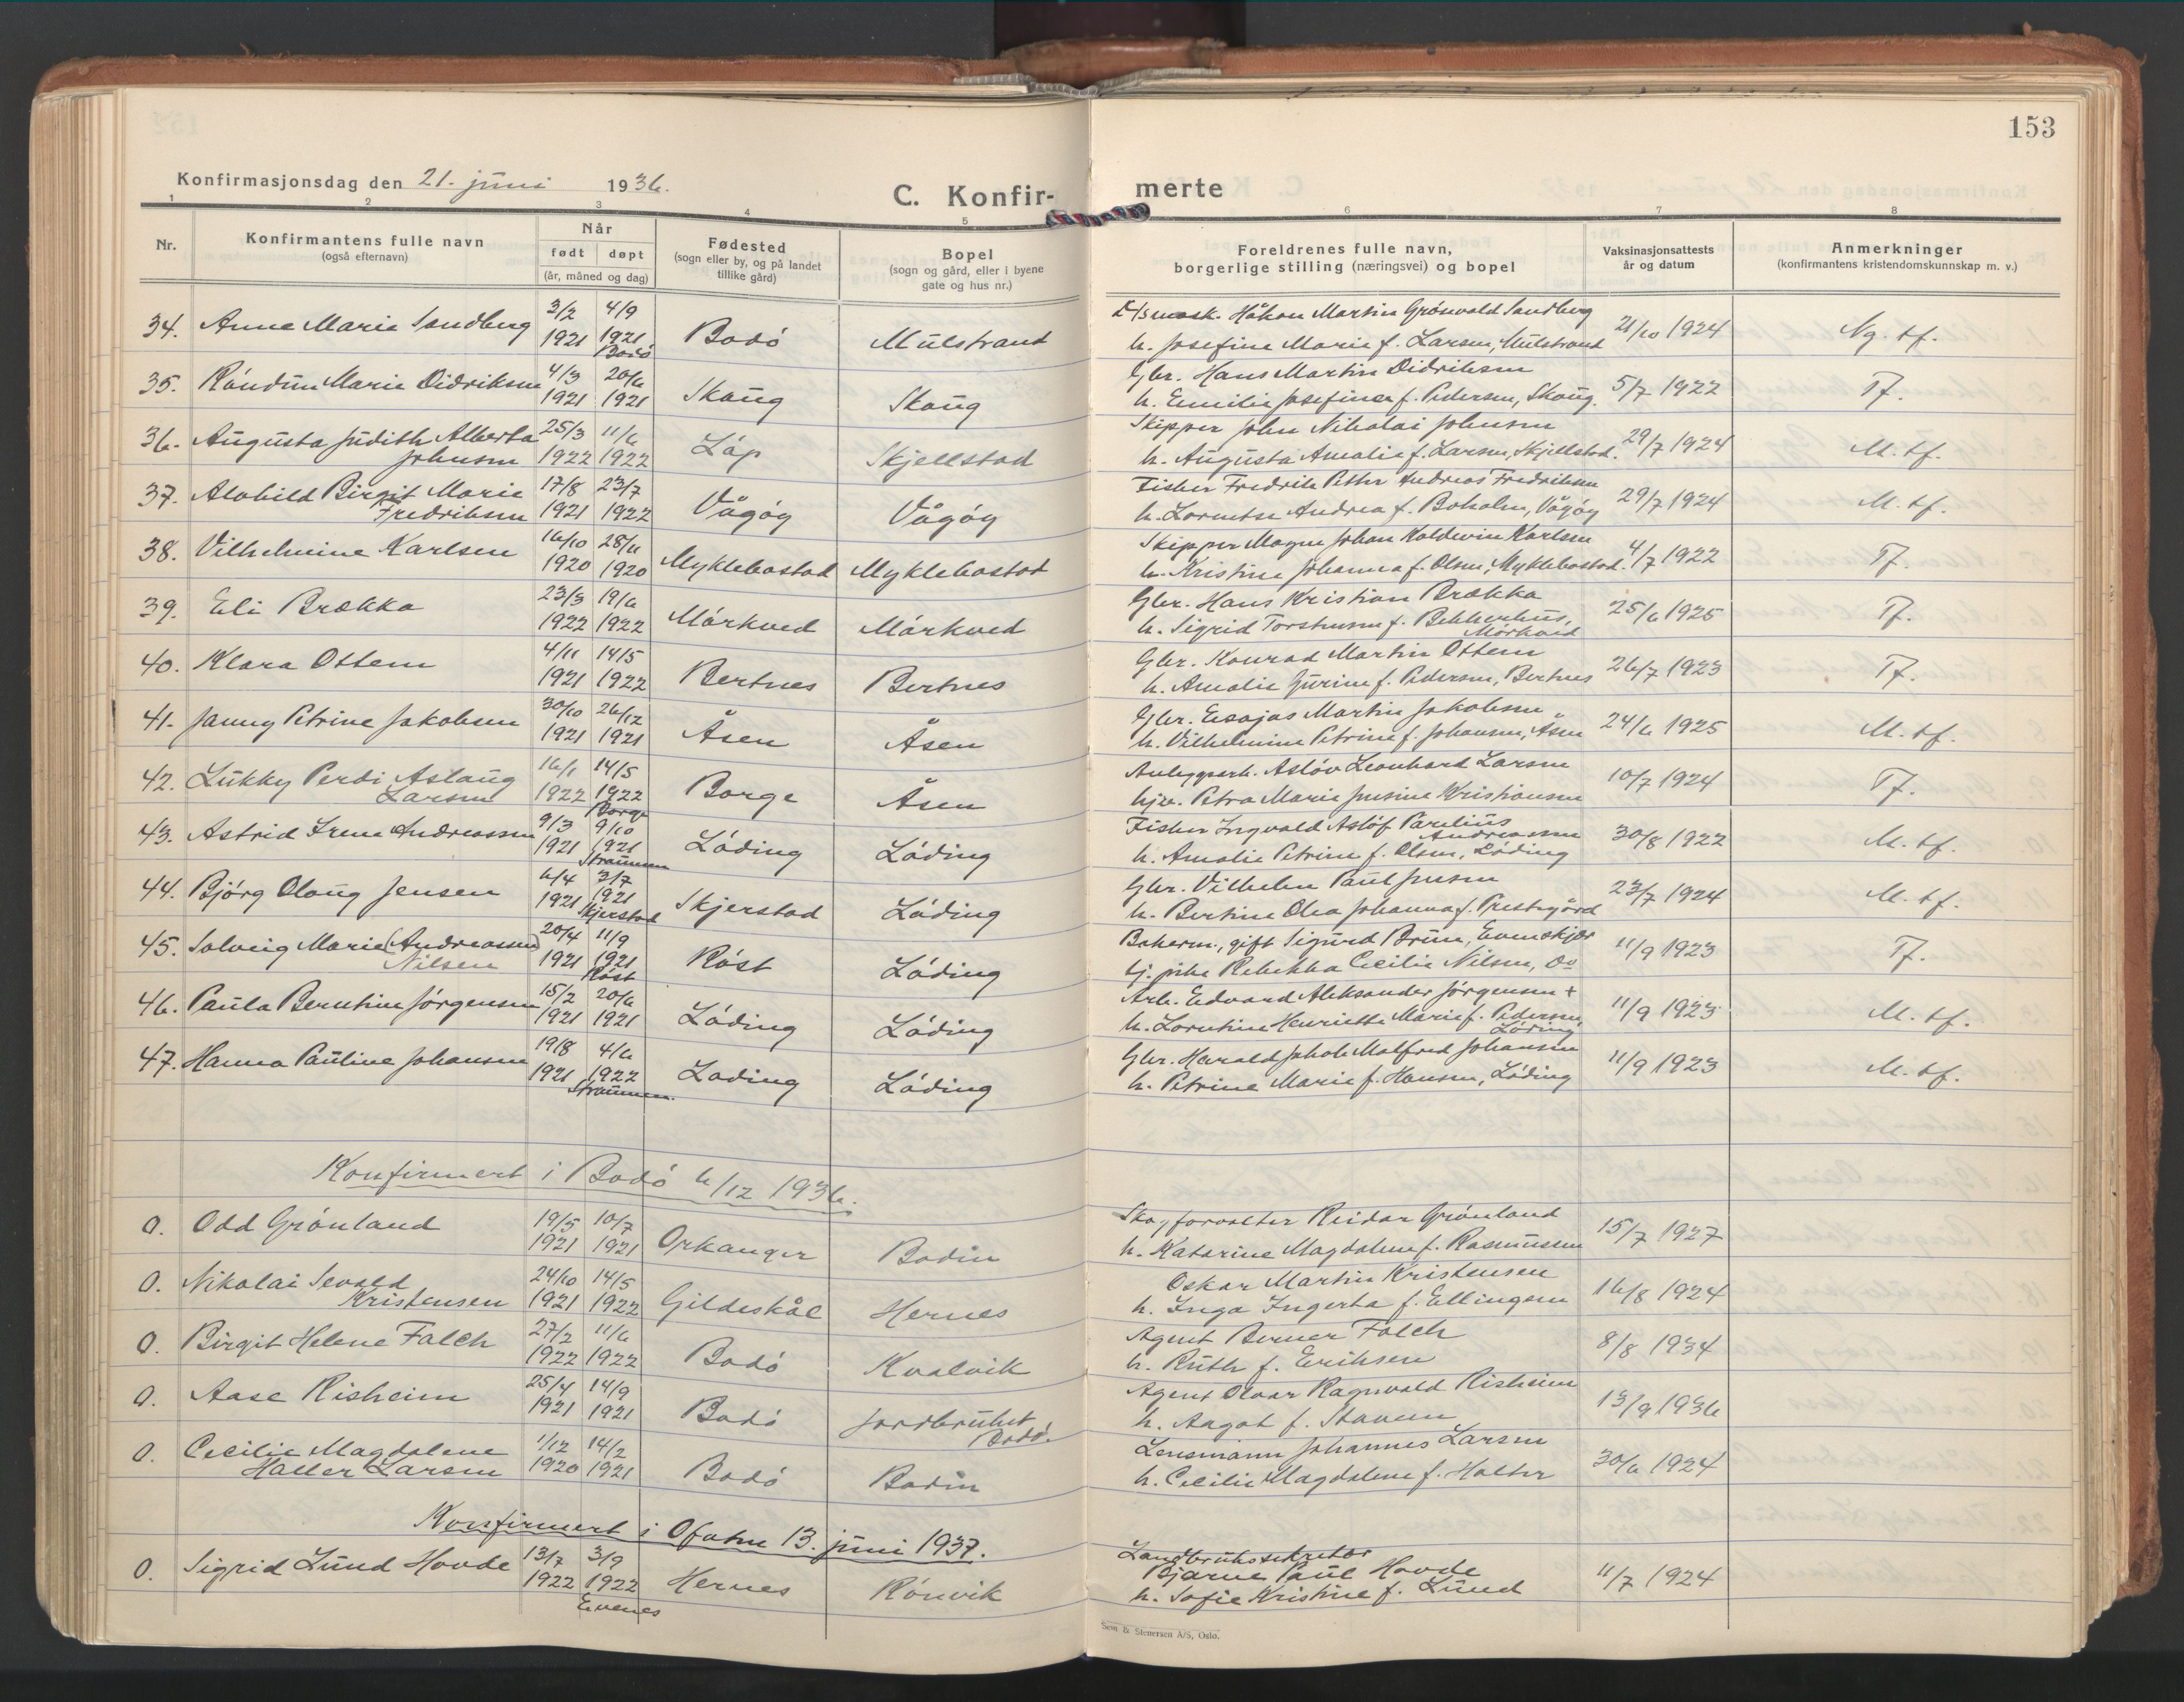 153
Konfirmasjonsdag den 21. juni 1936.
C. Konfir-
merte
1 2 3 4 5 6 7 8
Nr.
Konfirmantens fulle navn
(også efternavn)
Når
født døpt
(år, måned og dag)
Fødested
(sogn eller by, og på landet
tillike gård)
Bopel
(sogn og gård, eller i byene
gate og hus nr.)
Foreldrenes fulle navn,
borgerlige stilling (næringsvei) og bopel
Vaksinasjonsattests
år og datum
Anmerkninger
(konfirmantens kristendomskunnskap m. v.)
34. Anne Marie Sandberg 3/2 1921 4/9 1921 Bodó Bodó Mulstrand
Håkon Martin Grónvold Sandberg
h. Josefine Marie f. Larsen, Mulstrand 21/10 1924 Ng. tf.
35. Róndun Marie Didriksen 4/3 1921 20/6 1921 Skaug Skaug
Gbr. Hans Martin Didriksen
h. Emilie Josefine f. Pedersen, Skaug. 5/7 1922 Tf.
36. Augusta Judith Alberta
Johnsen 25/3 1922 11/6 1922 Lóp Skjellstad
Skipper John Nikolai Johnsen
h. Augusta Amalie f. Larsen, Skjellstad. 29/7 1924 M. tf.
37. Alvhild Birgit Marie
Fredriksen 17/8 1921 23/7 1922 Vågóy Vågóy
Fisker Fredrik Petter Andreas Fredriksen
h. Lorentse Andrea f. Boholm, Vågóy 29/7 1924 M. tf.
38. Vilhelmine Karlsen 16/10 1920 28/11 1920 Myklebostad Myklebostad
Skipper Magne Johan Kaldewin Karlsen
h. Kristine Johanna f. Olsen, Myklebostad. 4/7 1922 Tf.
39. Eli Brækka 23/3 1922 19/6 1922 Mórkved Mórkved
Gbr. Hans Kristian Brækka
h. Sigrid Torstensen f. Bekkerhus,
Mórkved 25/6 1925 Tf.
40. Klara Ottem 4/11 1921 14/5 1922 Bertnes Bertnes
Gbr. Konrad Martin Ottem
h. Amalie Gurine f. Pedersen, Bertnes 26/7 1923 Tf.
41. Janny Petrine Jakobsen 30/10 1921 26/12 1921 Åsen Åsen
Gbr. Esajas Martin Jakobsen
h. Vilhelmine Petrine f. Johansen, Åsen 24/6 1925 M. tf.
42. Lukky Perdi Aslaug
Larsen 16/1 1922 14/5 1922 Borge Borge Åsen
Anleggsarb. Aslóv Leonhard Larsen
Petra Marie Jensine Kristiansen 10/7 1924 Tf.
43. Astrid Irene Andreassen 9/3 1921 9/10 1921 Straumen Lóding Lóding
Fisker Ingvald Aslóf Parelius
Andreassen
h. Amalie Petrine f. Olsen, Lóding 30/8 1922 M. tf.
44. Bjórg Olaug Jensen 6/4 1921 3/7 1921 Skjerstad Skjerstad Lóding
Gbr. Vilhelm Paul Jensen
h. Bertine Olea Johanna f. Prestegård 23/7 1924 M. tf.
45. Solveig Marie (Andreassen)
Nilsen 20/4 1921 11/9 1921 Róst Róst Lóding
Bakerm., gift Sigurd Brun, Evenskjær
Rebekka Cecilie Nilsen, Do 11/9 1923 Tf.
46. Paula Berntine Jórgensen 15/2 1921 20/6 1921 Lóding Lóding
Arb. Edvard Aleksander Jórgensen +
h. Lorntine Henriette Marie f. Pedersen,
Lóding 11/9 1923 M. tf.
47. Hanna Pauline Johansen 19/8 1921 4/6 1922 Straumen. Lóding Lóding
Gbr. Harald Jakob Malfred Johansen
h. Petrine Marie f. Hansen, Lóding 11/9 1923 M. tf.
Konfirmert i Bodó 6/12 1936.
0. Odd Grónland 19/5 1921 10/7 1921 Orkanger Bodin
Skogforvalter Reidar Grónland
h. Katarine Magdalene f. Rasmussen 15/7 1927
0. Nikolai Sevald
Kristensen 24/10 1921 14/5 1922 Gildeskål Hernes
Oskar Martin Kristensen
h. Inga Ingerta f. Ellingsen 16/8 1924
0. Birgit Helene Falch 27/2 1922 11/6 1922 Bodó Kvalvik
Agent Berner Falch
h. Ruth f. Eriksen 8/8 1934
0. Aase Risheim 25/4 1921 14/9 1921 Bodó Jordbruket
Bodó.
Agent Olvar Ragnvald Risheim
h. Aagot f. Stavem 13/9 1936
0. Cecilie Magdalene
Haller Larsen 1/12 1920 14/2 1921 Bodó Bodin
Lensmann Johannes Larsen
h. Cecilie Magdalene f. Halter 30/6 1924
Konfirmert i Ofoten 13. juni 1937.
0. Sigrid Lund Hovde 13/7 1922 3/9 1922 Evenes Hernes Rónvik
Landbrukssekretær
Bjarne Paul Hovde
h. Sofie Kristine f. Lund 11/7 1924
Sem & Stenersen A/S, Oslo.